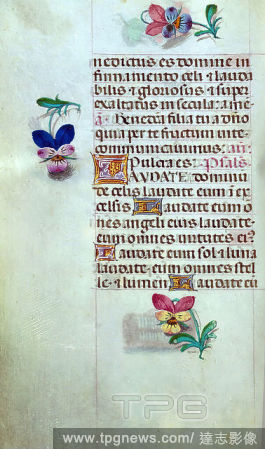 nedictus es domine in
firmamento celi et lauda
bilis et gloriosus et super
exaltatus in secula. amē
a. Benedicta filia tu a dn̄o
quia per te fructum vite
communicavimus. an̄.
Pulcra es: Psalˢ
LAUDATE dominū
de celis laudate eum ī ex
celsis Laudate eum o
nēs angeli eius laudate
eum omnes virtutes eiꝰ
Laudate eum sol et luna
laudate eum omnes stel
le et lumen Laudate eū
TPG
www.tpgnews.com/ 達志影像